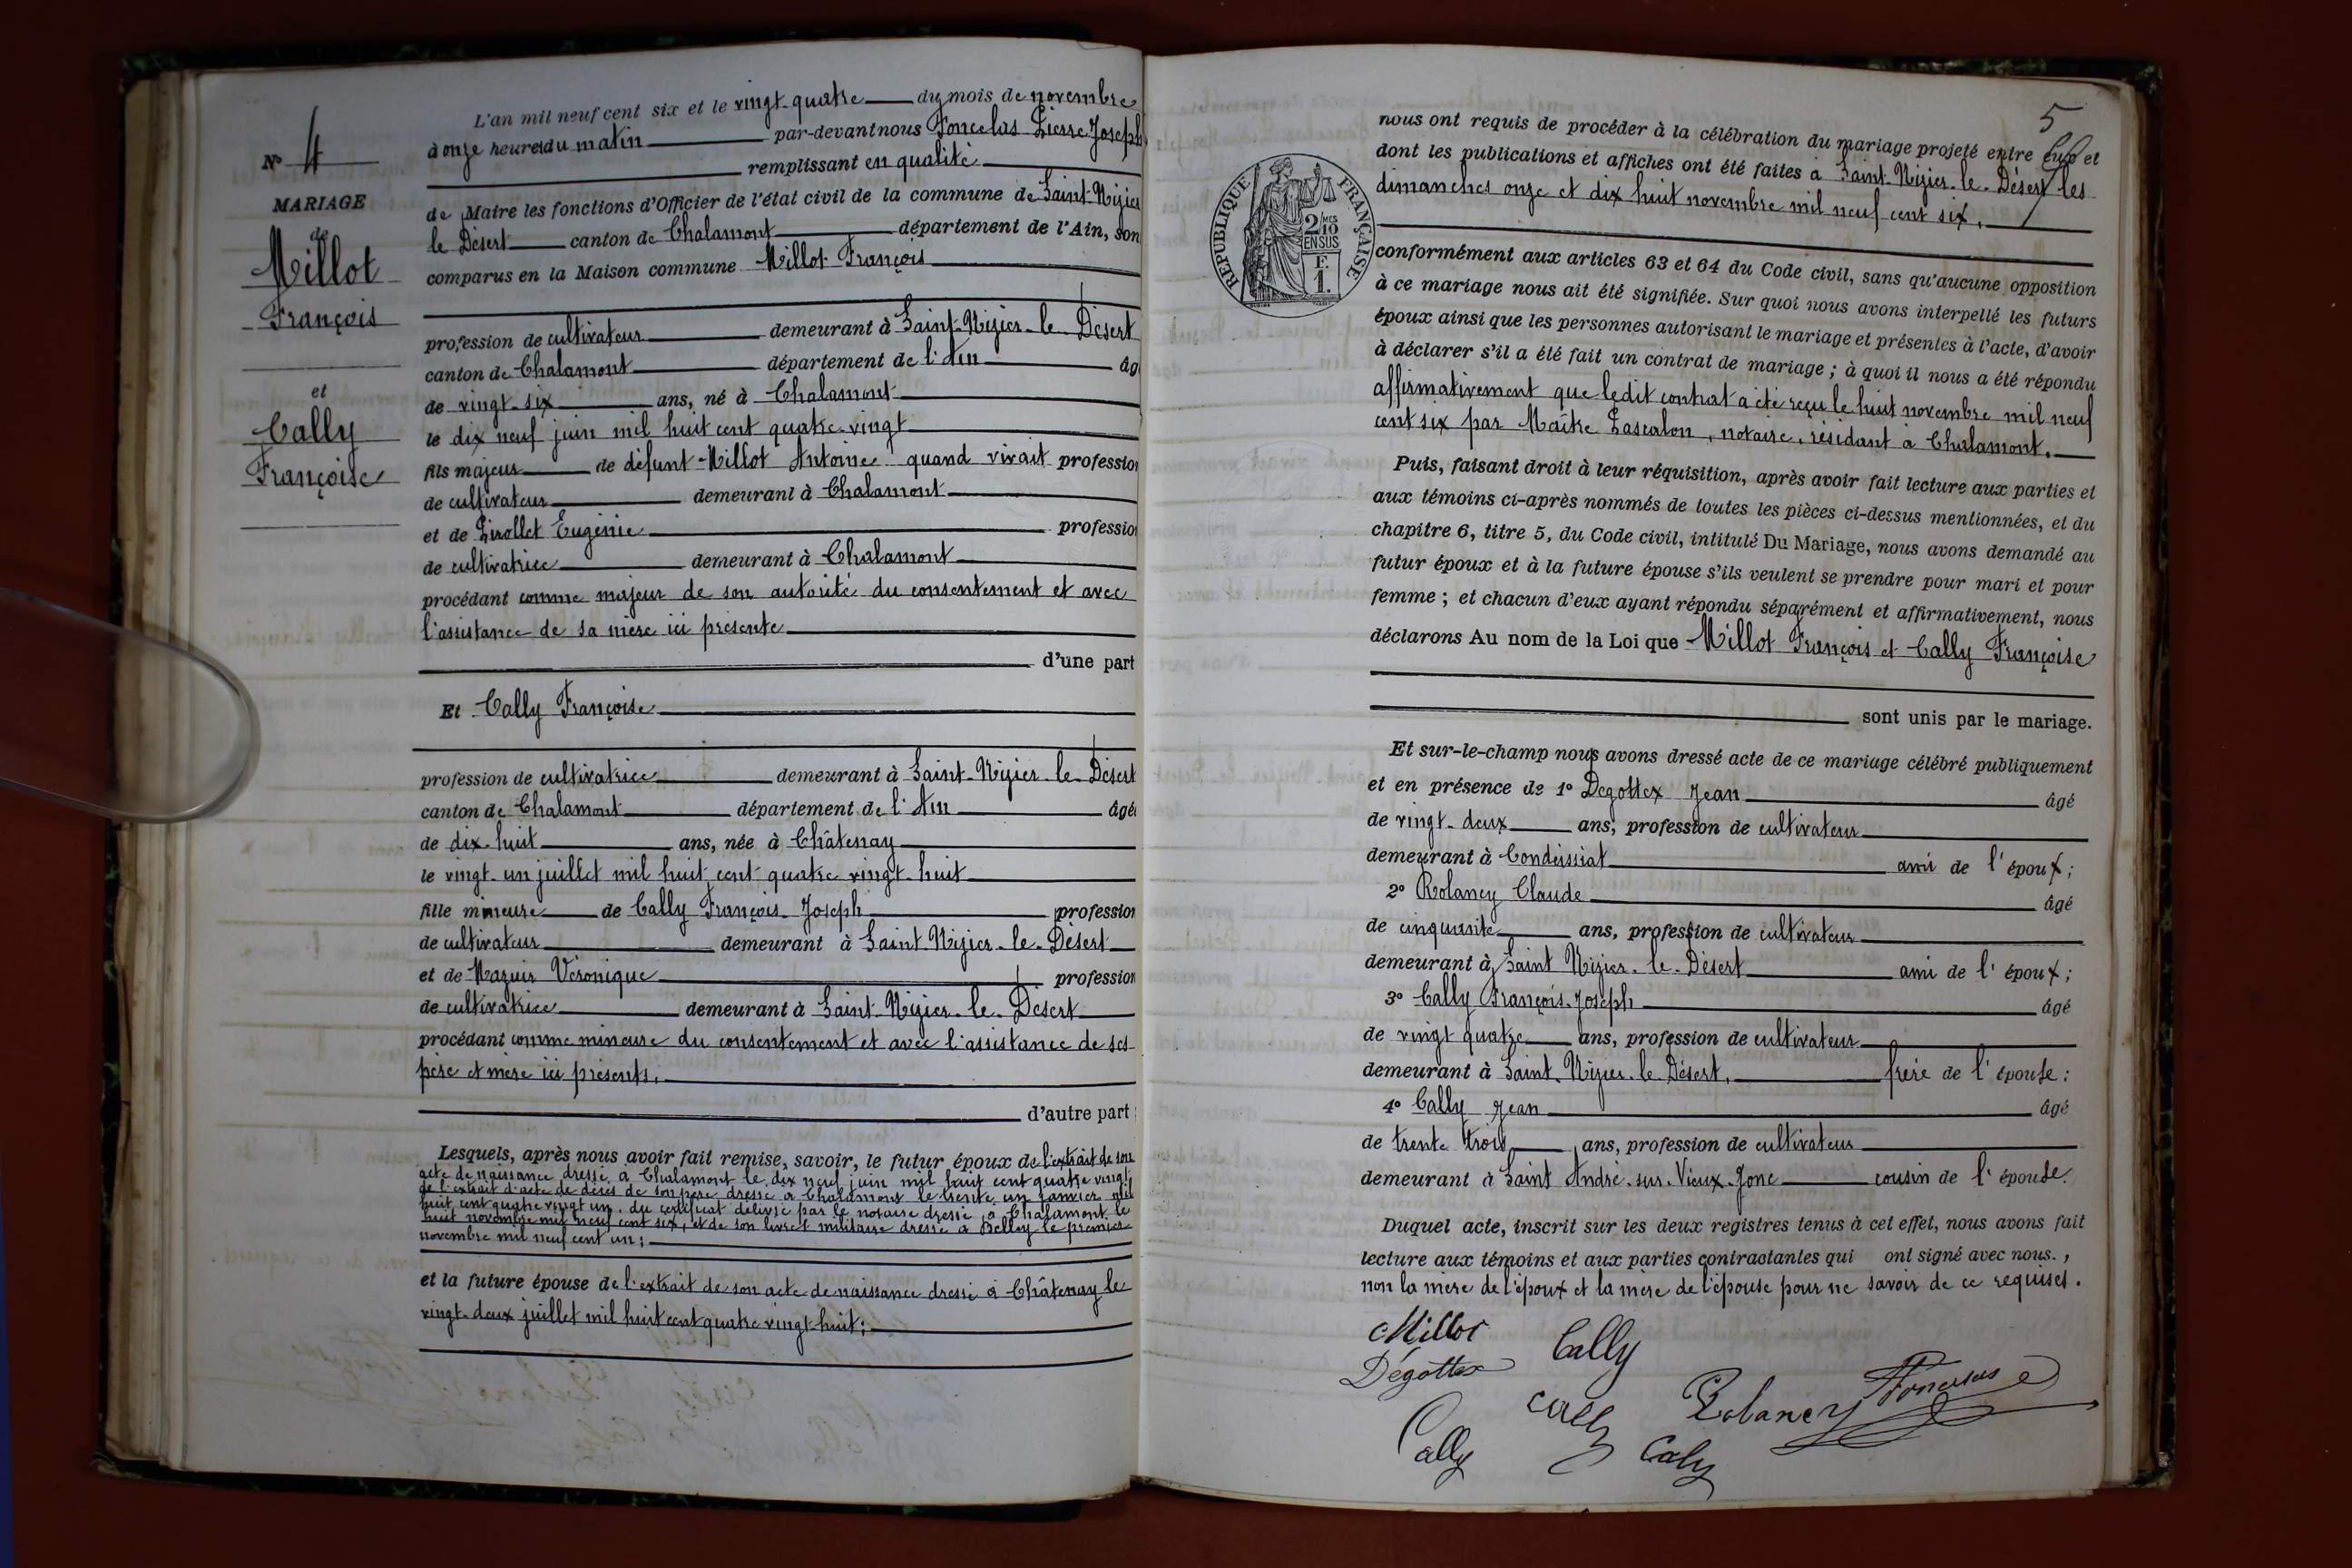 L'an mil neuf cent six et le vingt-quatre du mois de novembre
à onze heures du matin par-devant nous Poncelas Pierre Joseph
remplissant en qualité
de Maire les fonctions d'Officier de l'état civil de la commune de Saint-Nizier
le Désert canton de Chalamont département de l'Ain, son
comparus en la Maison commune Millot François
profession de cultivateur demeurant à Saint-Nizier-le-Désert
canton de Chalamont département de l'Ain âg
de vingt-six ans, né à Chalamont
le dix neuf juin mil huit cent quatre-vingt
fils majeur de défunt Millot Antoine quand vivait profession
de cultivateur demeurant à Chalamont
et de Pirollet Eugénie profession
de cultivatrice demeurant à Chalamont
procédant comme majeur de son autorité du consentement et avec
l'assistance de sa mère ici présente
d'une part
Et Cally Françoise
profession de cultivatrice demeurant à Saint-Nizier-le-Désert
canton de Chalamont département de l'Ain âgée
de dix-huit ans, née à Châtenay
le vingt-un juillet mil huit cent quatre vingt-huit
fille mineure de Cally François-Joseph profession
de cultivateur demeurant à Saint Nizier-le-Désert
et de Mazuir Véronique profession
de cultivatrice demeurant à Saint-Nizier-le-Désert
procédant comme mineure du consentement et avec l'assistance de ses
père et mère ici présents.
d'autre part;
Lesquels, après nous avoir fait remise, savoir, le futur époux de l'extrait de son
acte de naissance dressé à Chalamont le dix neuf juin mil huit cent quatre vingt;
de l'extrait d'acte de décès de son père dressé à Chalamont le trente un janvier mil
huit cent quatre vingt un, du certificat délivré par le notaire dressé à Chalamont le
huit novembre mil neuf cent six, et de son livret militaire dressé à Belley le premier
novembre mil neuf cent un;
et la future épouse de l'extrait de son acte de naissance dressé à Châtenay le
vingt-deux juillet mil huit cent quatre vingt-huit;
N° 4
MARIAGE
de
Millot
François
et
Cally
Françoise
5
nous ont requis de procéder à la célébration du mariage projeté entre eux et
dont les publications et affiches ont été faites à Saint-Nizier-le-Désert les
dimanches onze et dix huit novembre mil neuf cent six.
RÉPUBLIQUE FRANÇAISE
2/10 MES
EN SUS
F.
1.
conformément aux articles 63 et 64 du Code civil, sans qu'aucune opposition
à ce mariage nous ait été signifiée. Sur quoi nous avons interpellé les futurs
époux ainsi que les personnes autorisant le mariage et présentes à l'acte, d'avoir
à déclarer s'il a été fait un contrat de mariage; à quoi il nous a été répondu
affirmativement que ledit contrat a été reçu le huit novembre mil neuf
cent six par Maître Lascalon, notaire, résidant à Chalamont.
Puis, faisant droit à leur réquisition, après avoir fait lecture aux parties et
aux témoins ci-après nommés de toutes les pièces ci-dessus mentionnées, et du
chapitre 6, titre 5, du Code civil, intitulé Du Mariage, nous avons demandé au
futur époux et à la future épouse s'ils veulent se prendre pour mari et pour
femme; et chacun d'eux ayant répondu séparément et affirmativement, nous
déclarons Au nom de la Loi que Millot François et Cally Françoise
sont unis par le mariage.
Et sur-le-champ nous avons dressé acte de ce mariage célébré publiquement
et en présence de 1° Degottex Jean âgé
de vingt-deux ans, profession de cultivateur
demeurant à Condeissiat ami de l'époux;
2° Rolancy Claude âgé
de cinquante ans, profession de cultivateur
demeurant à Saint Nizier-le-Désert ami de l'époux;
3° Cally François-Joseph âgé
de vingt quatre ans, profession de cultivateur
demeurant à Saint-Nizier-le-Désert, frère de l'épouse;
4° Cally Jean âgé
de trente trois ans, profession de cultivateur
demeurant à Saint André-sur-Vieux-Jonc cousin de l'épouse.
Duquel acte, inscrit sur les deux registres tenus à cet effet, nous avons fait
lecture aux témoins et aux parties contractantes qui ont signé avec nous.,
non la mère de l'époux et la mère de l'épouse pour ne savoir de ce requises.
Millot Cally
Dégottex
Cally Cally Rolancy Poncelas
Caly